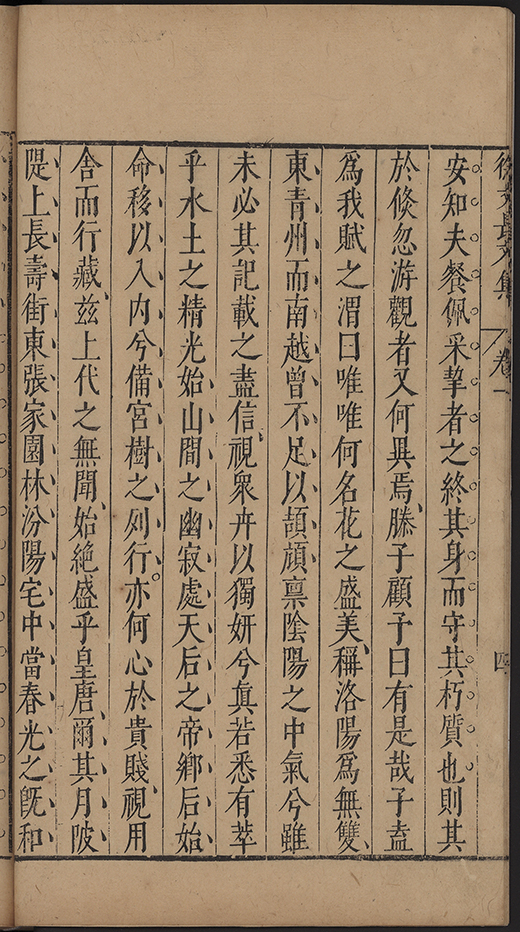 徐文長文集 卷一 四
安知夫餐佩采摯者之終其身而守其朽質也則其
於倏忽游觀者又何異焉滕子顧予曰有是哉子盍
爲我賦之渭曰唯唯何名花之盛美稱洛陽爲無雙
東青州而南越曾不足以頡頏稟陰陽之中氣兮雖
未必其記載之盡信視衆卉以獨妍兮眞若悉有萃
乎水土之精光始山間之幽寂處天后之帝鄉后始
命移以入内兮備宮樹之列行亦何心於貴賤視用
舍而行藏兹上代之無聞始絶盛乎皇唐爾其月陂
隄上長壽街東張家園林汾陽宅中當春光之旣和